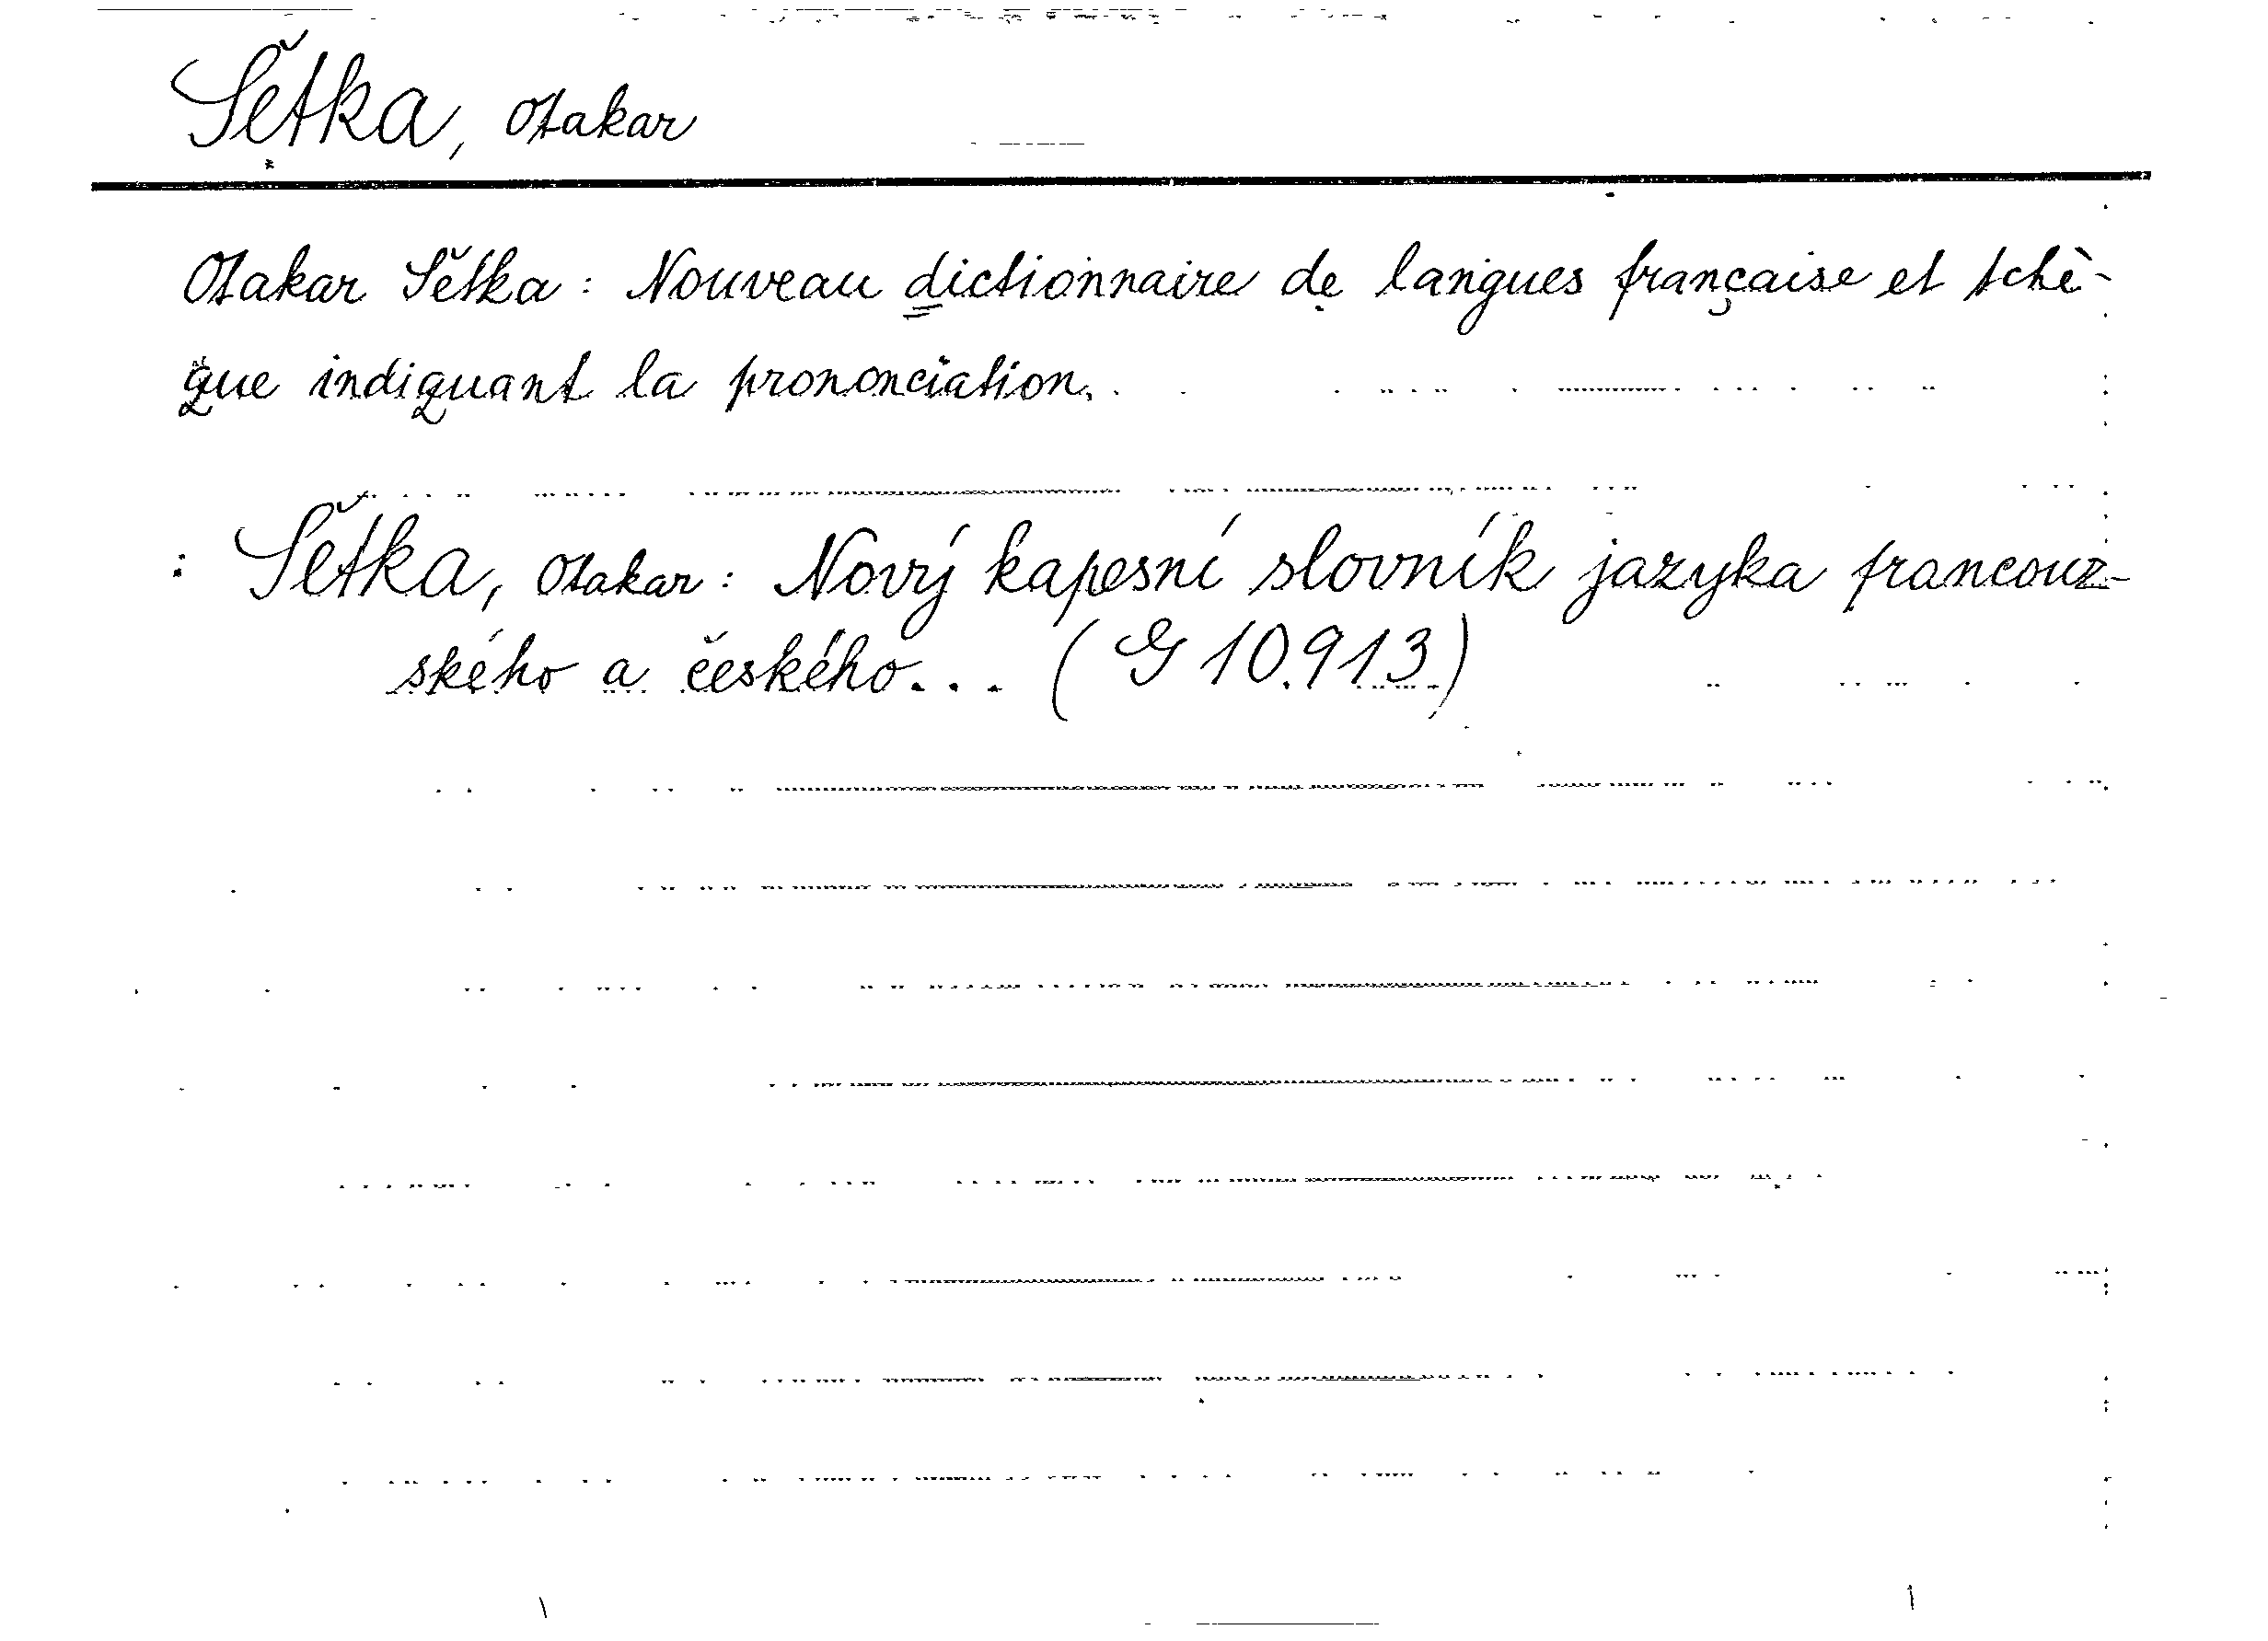 Šetka, Otakar
Otakar Šetka : Nouveau dictionnaire de langues française et tchè-
que indiquant la prononciation.
: Šetka, Otakar : Nový kapesní slovník jazyka francouz-
ského a českého... (G 10.913)